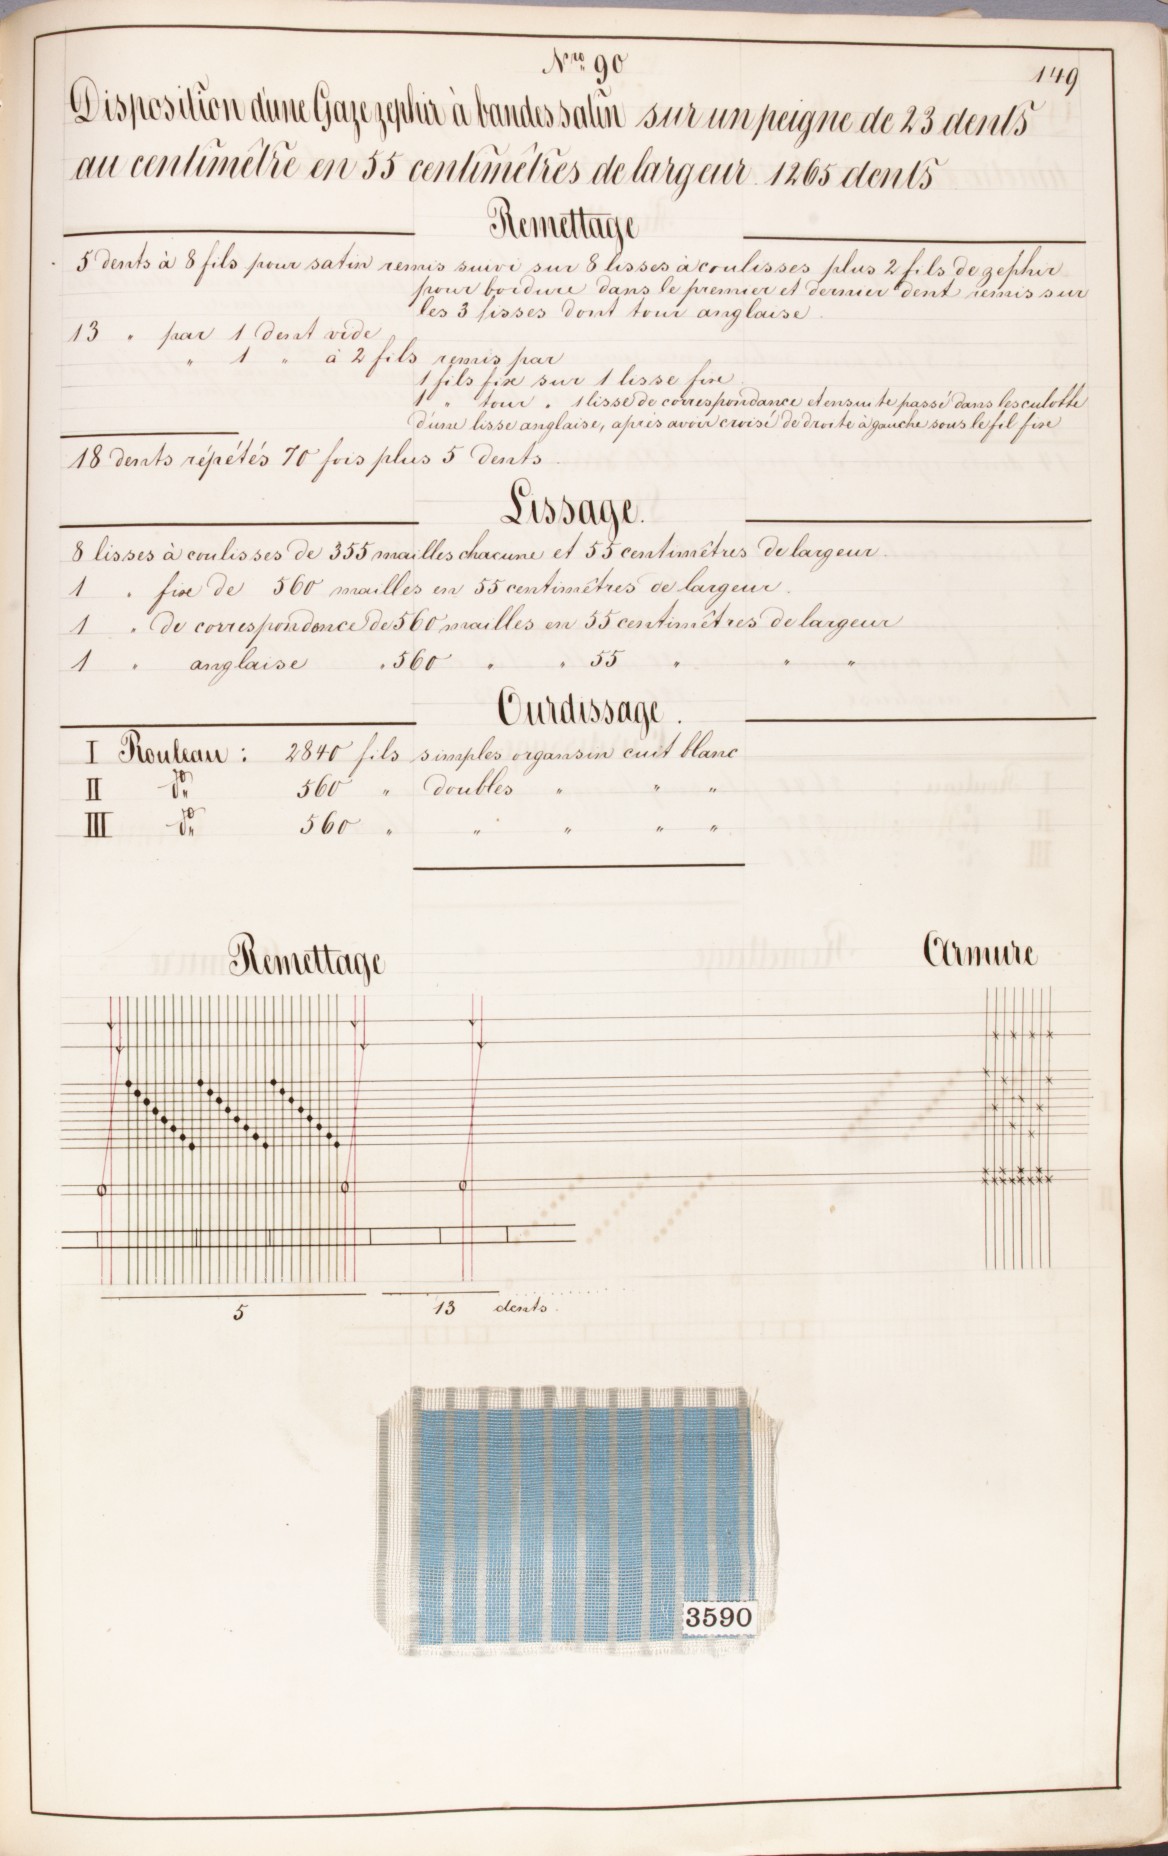 Nro 90
149
Disposition d'une Gaze zephir à bandes satin sur un peigne de 23 dents
au centimêtre en 55 centimêtres de largeur. 1265 dents
Remettage
5 dents à 8 fils pour satin remis suivi sur 8 lisses à coulisses plus 2 fils de zephir
pour bordure dans le premier et dernier dent remis sur
les 3 lisses dont tour anglaise
13 " par 1 dent vide
" 1 " à 2 fils remis par
1 fils fixe sur 1 lisse fixe
1 " tour " 1 lisse de correspondance et ensuite passé dans les culotte
d'une lisse anglaise, après avoir croisé de droite à gauche sous le fil fixe
18 dents répétés 70 fois plus 5 dents
Lissage.
8 lisses à coulisses de 355 mailles chacune et 55 centimêtres de largeur.
1 " fixe de 560 mailles en 55 centimêtres de largeur.
1 " de correspondance de 560 mailles en 55 centimêtres de largeur
1 " anglaise " 560 " " 55 " " "
Ourdissage.
I Rouleau : 2840 fils simples organsin cuit blanc
II do 560 " doubles " " "
III do 560 " " " " "
Remettage
Armure
5
13 dents.
3590